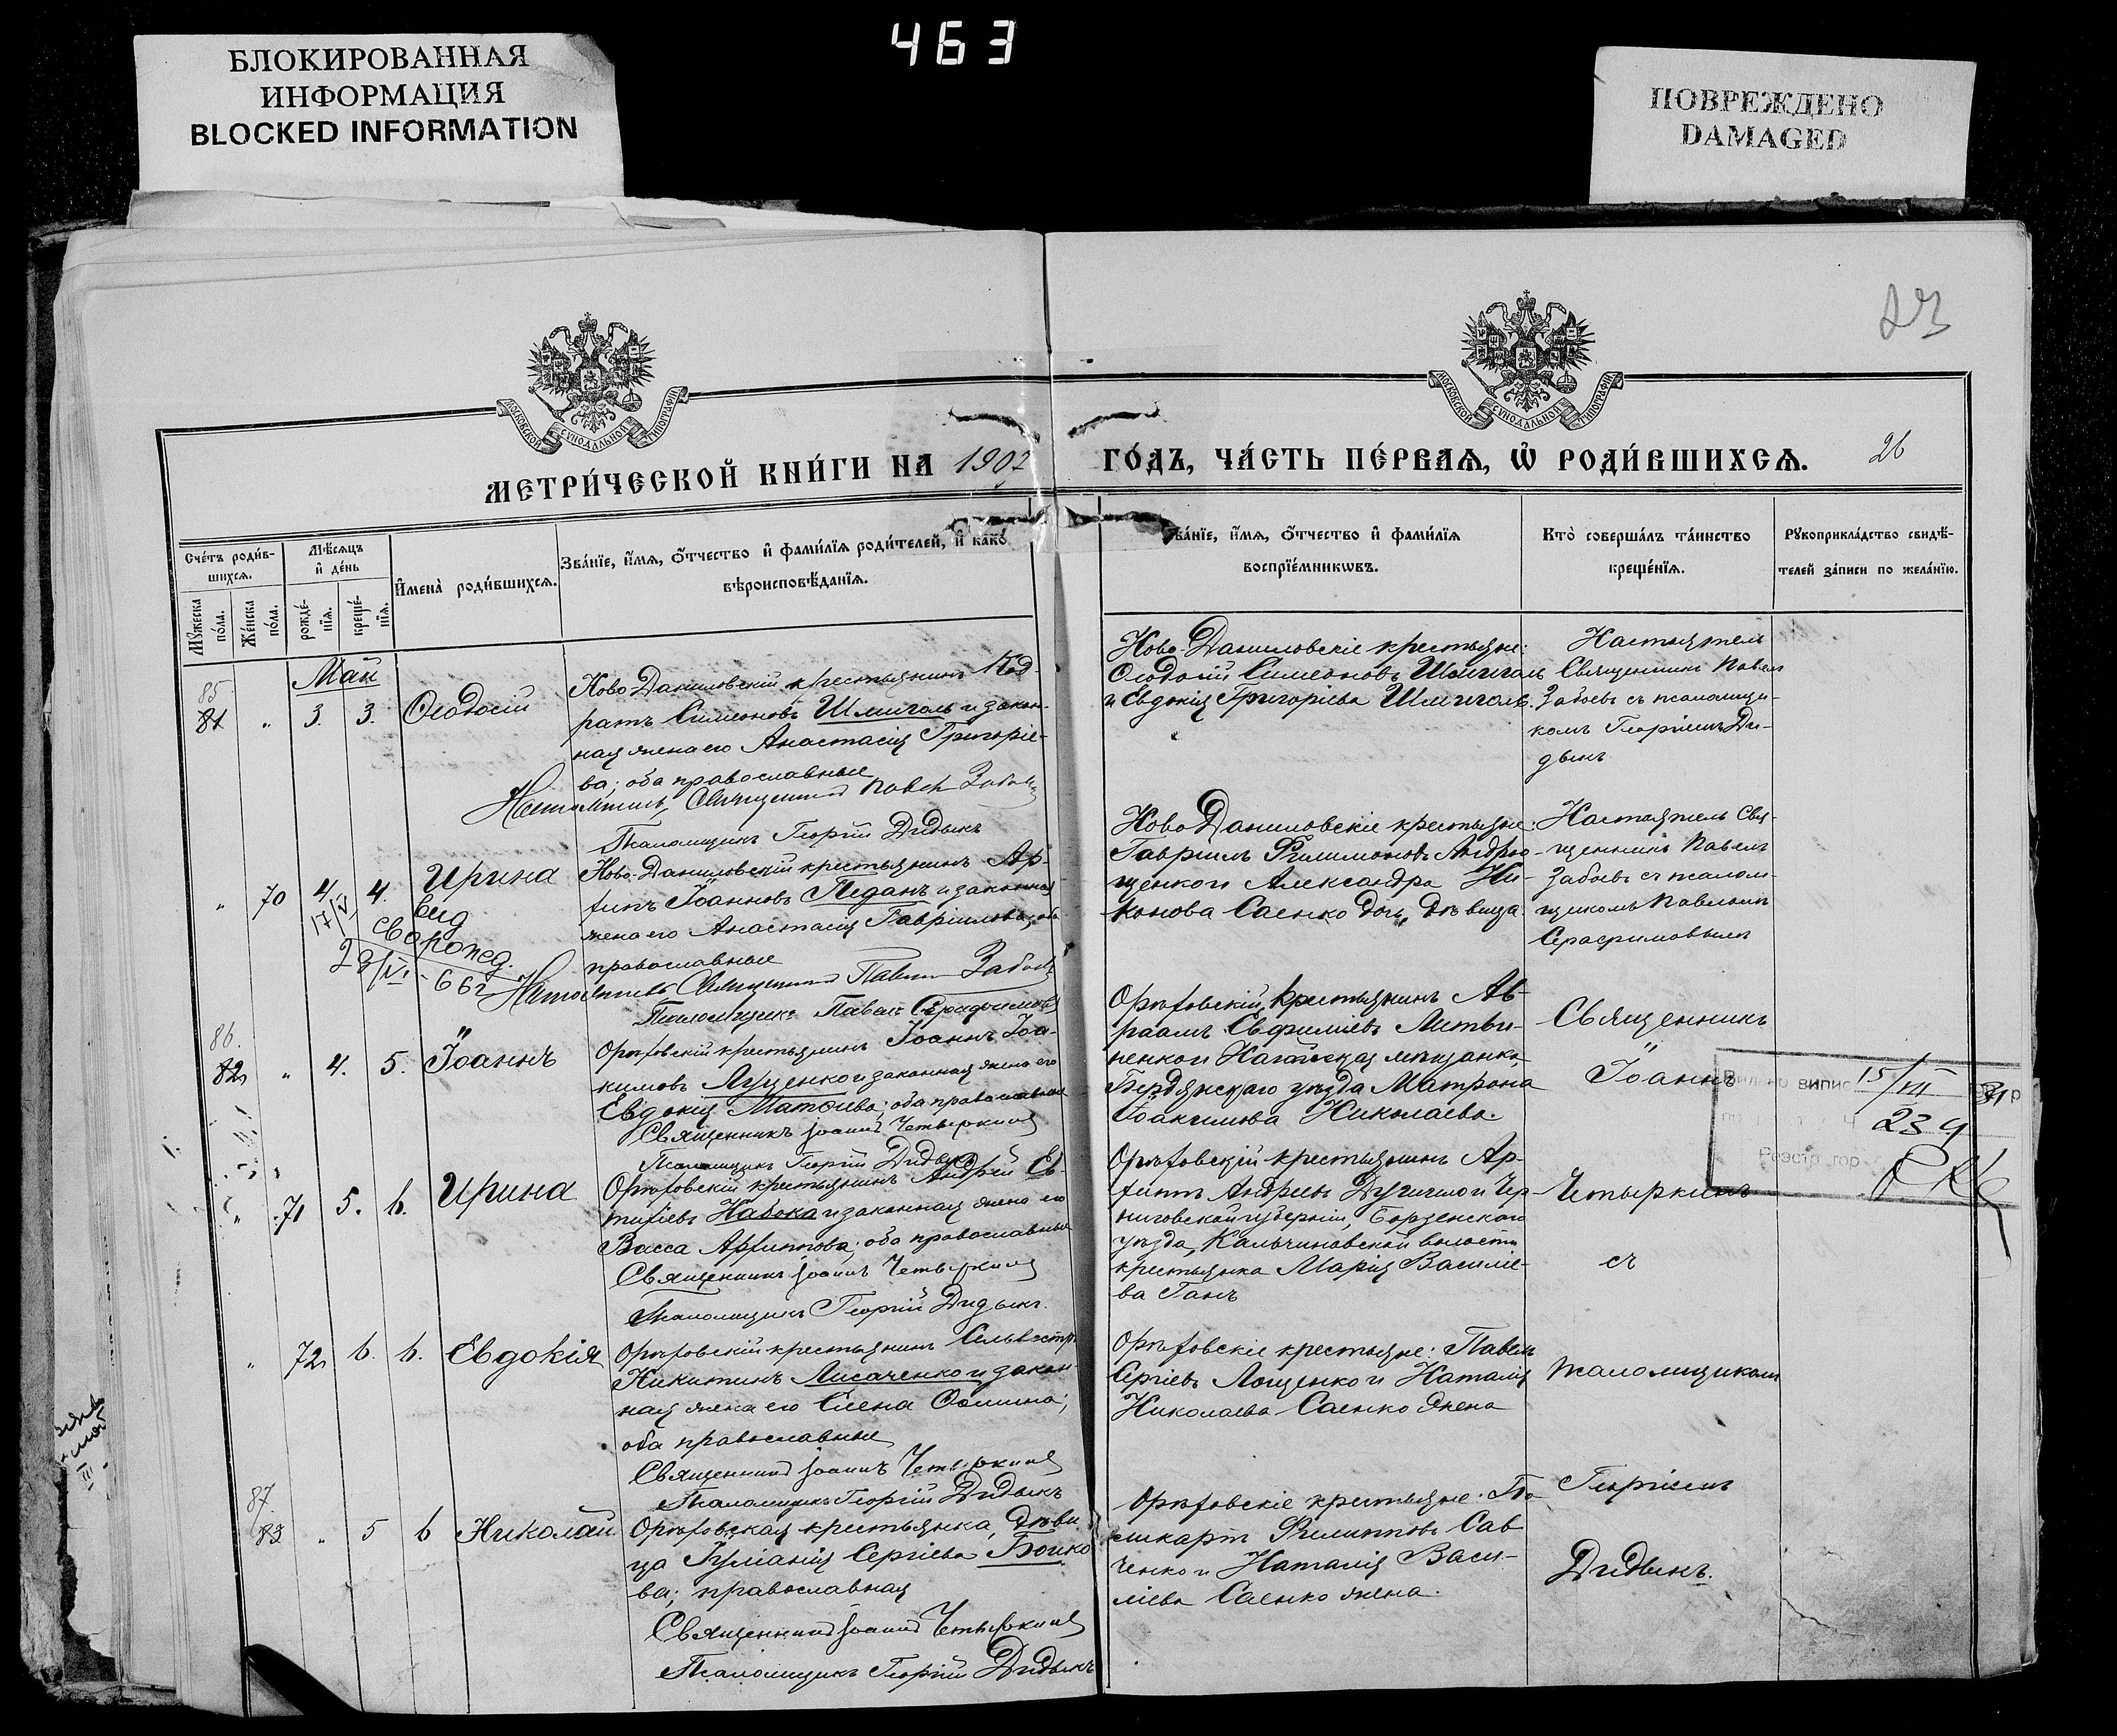 463
БЛОКИРОВАННАЯ
ИНФОРМАЦИЯ
BLOCKED INFORMATION
ПОВРЕЖДЕНО
DAMAGED
23
МОСКОВСКОЙ СУНОДАЛЬНОЙ ТИПОГРАФІИ
МОСКОВСКОЙ СУНОДАЛЬНОЙ ТИПОГРАФІИ
МЕТРИ́ЧЕСКОЙ КНИ́ГИ НА 1902
ГО́ДЪ, ЧА́СТЬ ПЕ́РВАѦ, Ѡ҆ РОДИ́ВШИХСѦ. 26
Сче́тъ роди́в-
шихсѧ.
Мꙋ́жеска
по́ла.
Же́нска
по́ла.
Мѣ́сѧцъ
и҆ де́нь
рожде́-
нїѧ.
креще́-
нїѧ.
И҆мена̀ роди́вшихсѧ.
Зва́нїе, и҆́мѧ, ѻ҆́тчество и҆ фами́лїѧ роди́телей, и҆ како́гѡ
вѣроисповѣ́данїѧ.
Зва́нїе, и҆́мѧ, ѻ҆́тчество и҆ фами́лїѧ
воспрїе́мникѡвъ.
Кто̀ соверша́лъ та́инство
креще́нїѧ.
Рꙋкоприкла́дство свидѣ́-
телей за́писи по жела́нїю.
Май
85
81 " 3. 3. Ѳеодосій
Ново-Даниловскій крестьянинъ Код-
ратъ Симеоновъ Шмиголь и закон-
ная жена его Анастасія Григоріе-
ва; оба православные
Настоятель, Священникъ Павелъ Забоевъ
Псаломщикъ Георгій Дидыкъ
Ново-Даниловскіе крестьяне:
Ѳеодосій Симеоновъ Шмиголь
и Евдокія Григоріева Шмиголь.
Настоятель
Священникъ Павелъ
Забоевъ съ псаломщи-
комъ Георгіемъ Ди-
дыкъ
" 70 4. 4. Ирина
17/V вид
свороnед.
28/VI-66г
Ново-Даниловскій крестьянинъ Ар-
хипъ Іоанновъ Педанъ и законная
жена его Анастасія Гавріилова; оба
православные
Настоятель Священникъ Павелъ Забоевъ
Псаломщикъ Павелъ Серафимовъ
Ново-Даниловскіе крестьяне:
Гавріилъ Филимоновъ Андрю-
щенко и Александра Ни-
конова Саенко дочь, дѣвица.
Настоятель Свя-
щенникъ Павелъ
Забоевъ съ псалом-
щикомъ Павеломъ
Серафимовымъ
86.
82 " 4. 5. Іоаннъ
Орѣховскій крестьянинъ Іоаннъ Іоа-
кимовъ Луценко и законная жена его
Евдокія Матѳіева; оба православные
Священникъ Іоаннъ Четыркинъ
Псаломщикъ Георгій Дидыкъ
Орѣховскій крестьянинъ Ав-
раамъ Евфиміевъ Литви-
ненко и Нагайская мѣщанка,
Бердянскаго уѣзда Матрона
Іоакимова Николаева.
Священникъ
Іоаннъ
Видано випис 15/III 81 р
239
Реєстр. гор.
" 71 5. 6. Ирина
Орѣховскій крестьянинъ Андрей Ев-
тихіевъ Набока и законная жена его
Васса Архиппова; оба православные
Священникъ Іоаннъ Четыркинъ
Псаломщикъ Георгій Дидыкъ.
Орѣховскій крестьянинъ Ар-
хиппъ Андреевъ и Чер-
ниговской губерніи, Борзенскаго
уѣзда, Кальчиновской волости
крестьянка Марія Василіе-
ва Ганъ
Четыркинъ
съ
" 72 6. 6. Евдокія
Орѣховскій крестьянинъ Сильвестръ
Никитинъ Лисаченко и закон-
ная жена его Елена Ѳомина;
оба православные
Священникъ Іоаннъ Четыркинъ
Псаломщикъ Георгій Дидыкъ
Орѣховскіе крестьяне: Павелъ
Сергіевъ Лощенко и Наталія
Николаева Саенко жена
псаломщикомъ
87
83 " 5 6 Николай
Орѣховская крестьянка, дѣви-
ца Іуліанія Сергіева Бойко-
ва; православная
Священникъ Іоаннъ Четыркинъ
Псаломщикъ Георгій Дидыкъ
Орѣховскіе крестьяне: По-
ликарпъ Филипповъ Сав-
ченко и Наталія Васи-
ліева Саенко жена.
Георгіемъ
Дидыкъ.